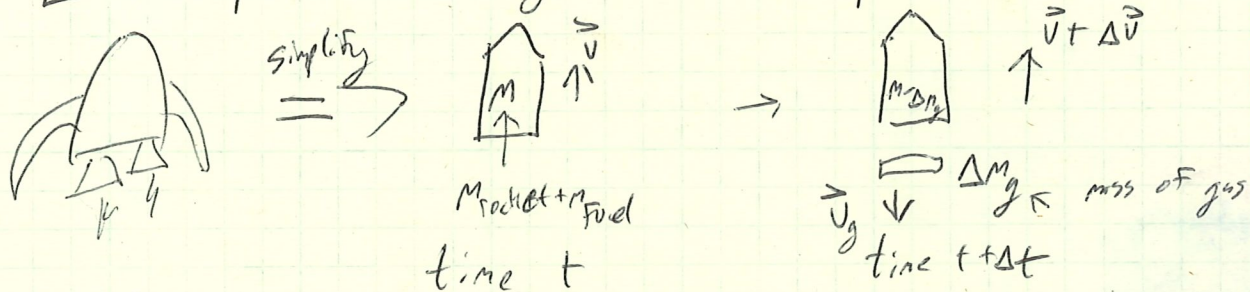 simplify
M
v⃗
M rocket + m fuel
time t
v⃗ + Δv⃗
M-Δmg
Δmg
mass of gas
v⃗g
time t+Δt